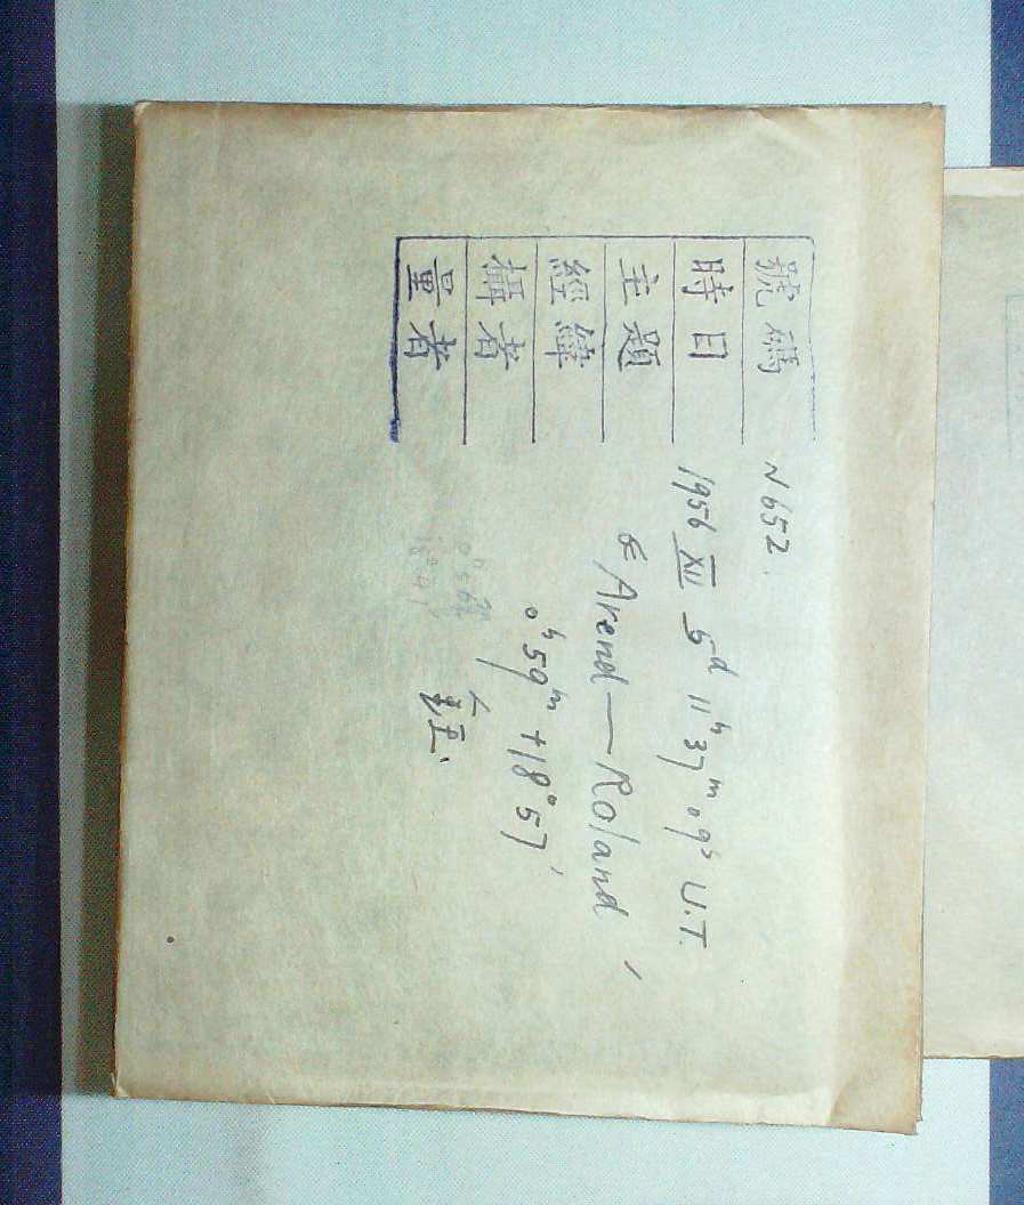 號碼 N 652.
時日 1956 XII 5ᵈ 11ʰ 37ᵐ.9ˢ U.T.
主題 Arend — Roland
經緯 0ʰ 59ᵐ +18° 57′
攝者
量者